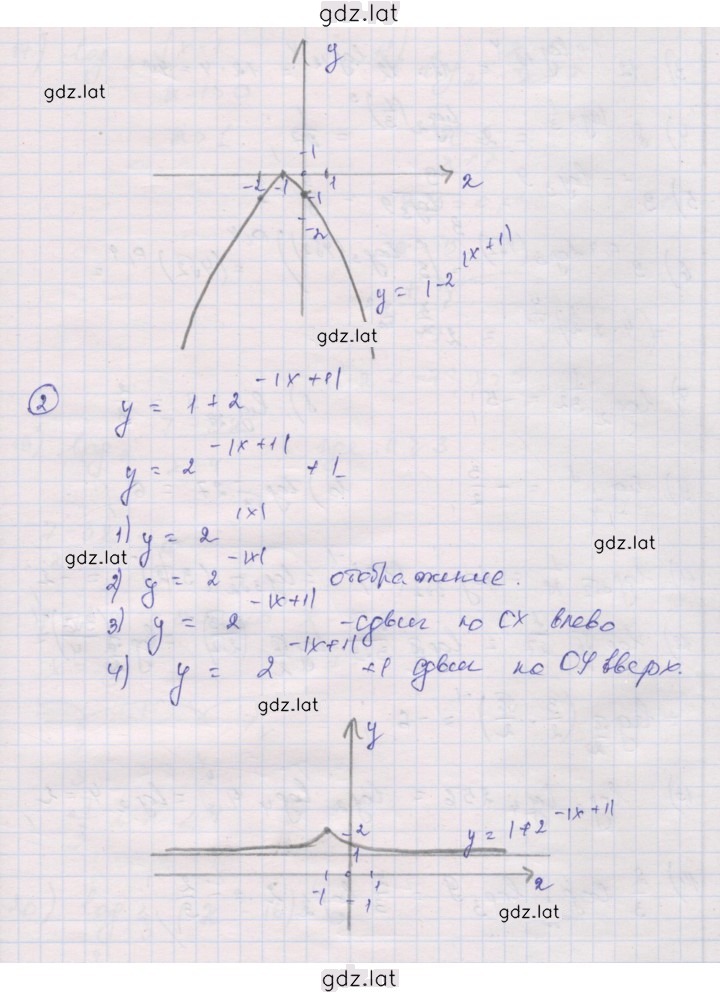 gdz.lat
y
gdz.lat
-1
-2 -1 1 x
-1
-2
y = 1-2^|x+1|
gdz.lat
2
y = 1+2^-|x+1|
y = 2^-|x+1| +1
1) y = 2^|x|
gdz.lat
gdz.lat
2) y = 2^-|x| отображение.
3) y = 2^-|x+1| -сдвиг по OX влево
4) y = 2^-|x+1| +1 сдвиг по OY вверх.
gdz.lat
y
2
y = 1+2^-|x+1|
1
-1 1 x
1
gdz.lat
gdz.lat